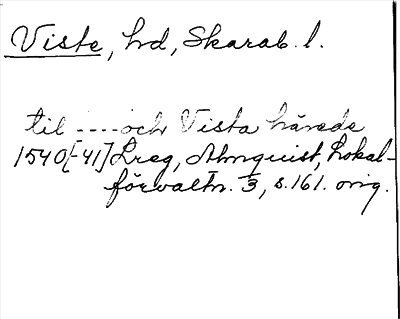 Viste, hd, Skarab. l.
til ---- och Vista härade
1540[-41] Lreg, Almquist, Lokal-
förvaltn. 3, s. 161. orig.